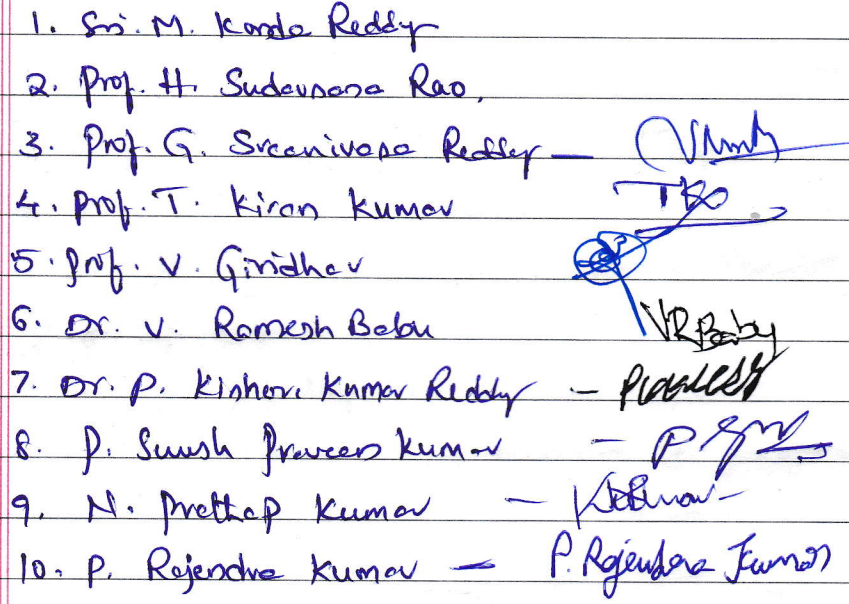 1. Sri. M. Konda Reddy
2. Prof. H. Sudarsana Rao,
3. Prof. G. Sreenivasa Reddy —
4. Prof. T. Kiran Kumar TKO
5. Prof. V. Giridhar
6. Dr. V. Ramesh Babu VRBaby
7. Dr. P. Kishore Kumar Reddy –
8. P. Suresh Praveen Kumar – P
9. N. Prathap Kumar –
10. P. Rajendra Kumar – P. Rajendra Kumar